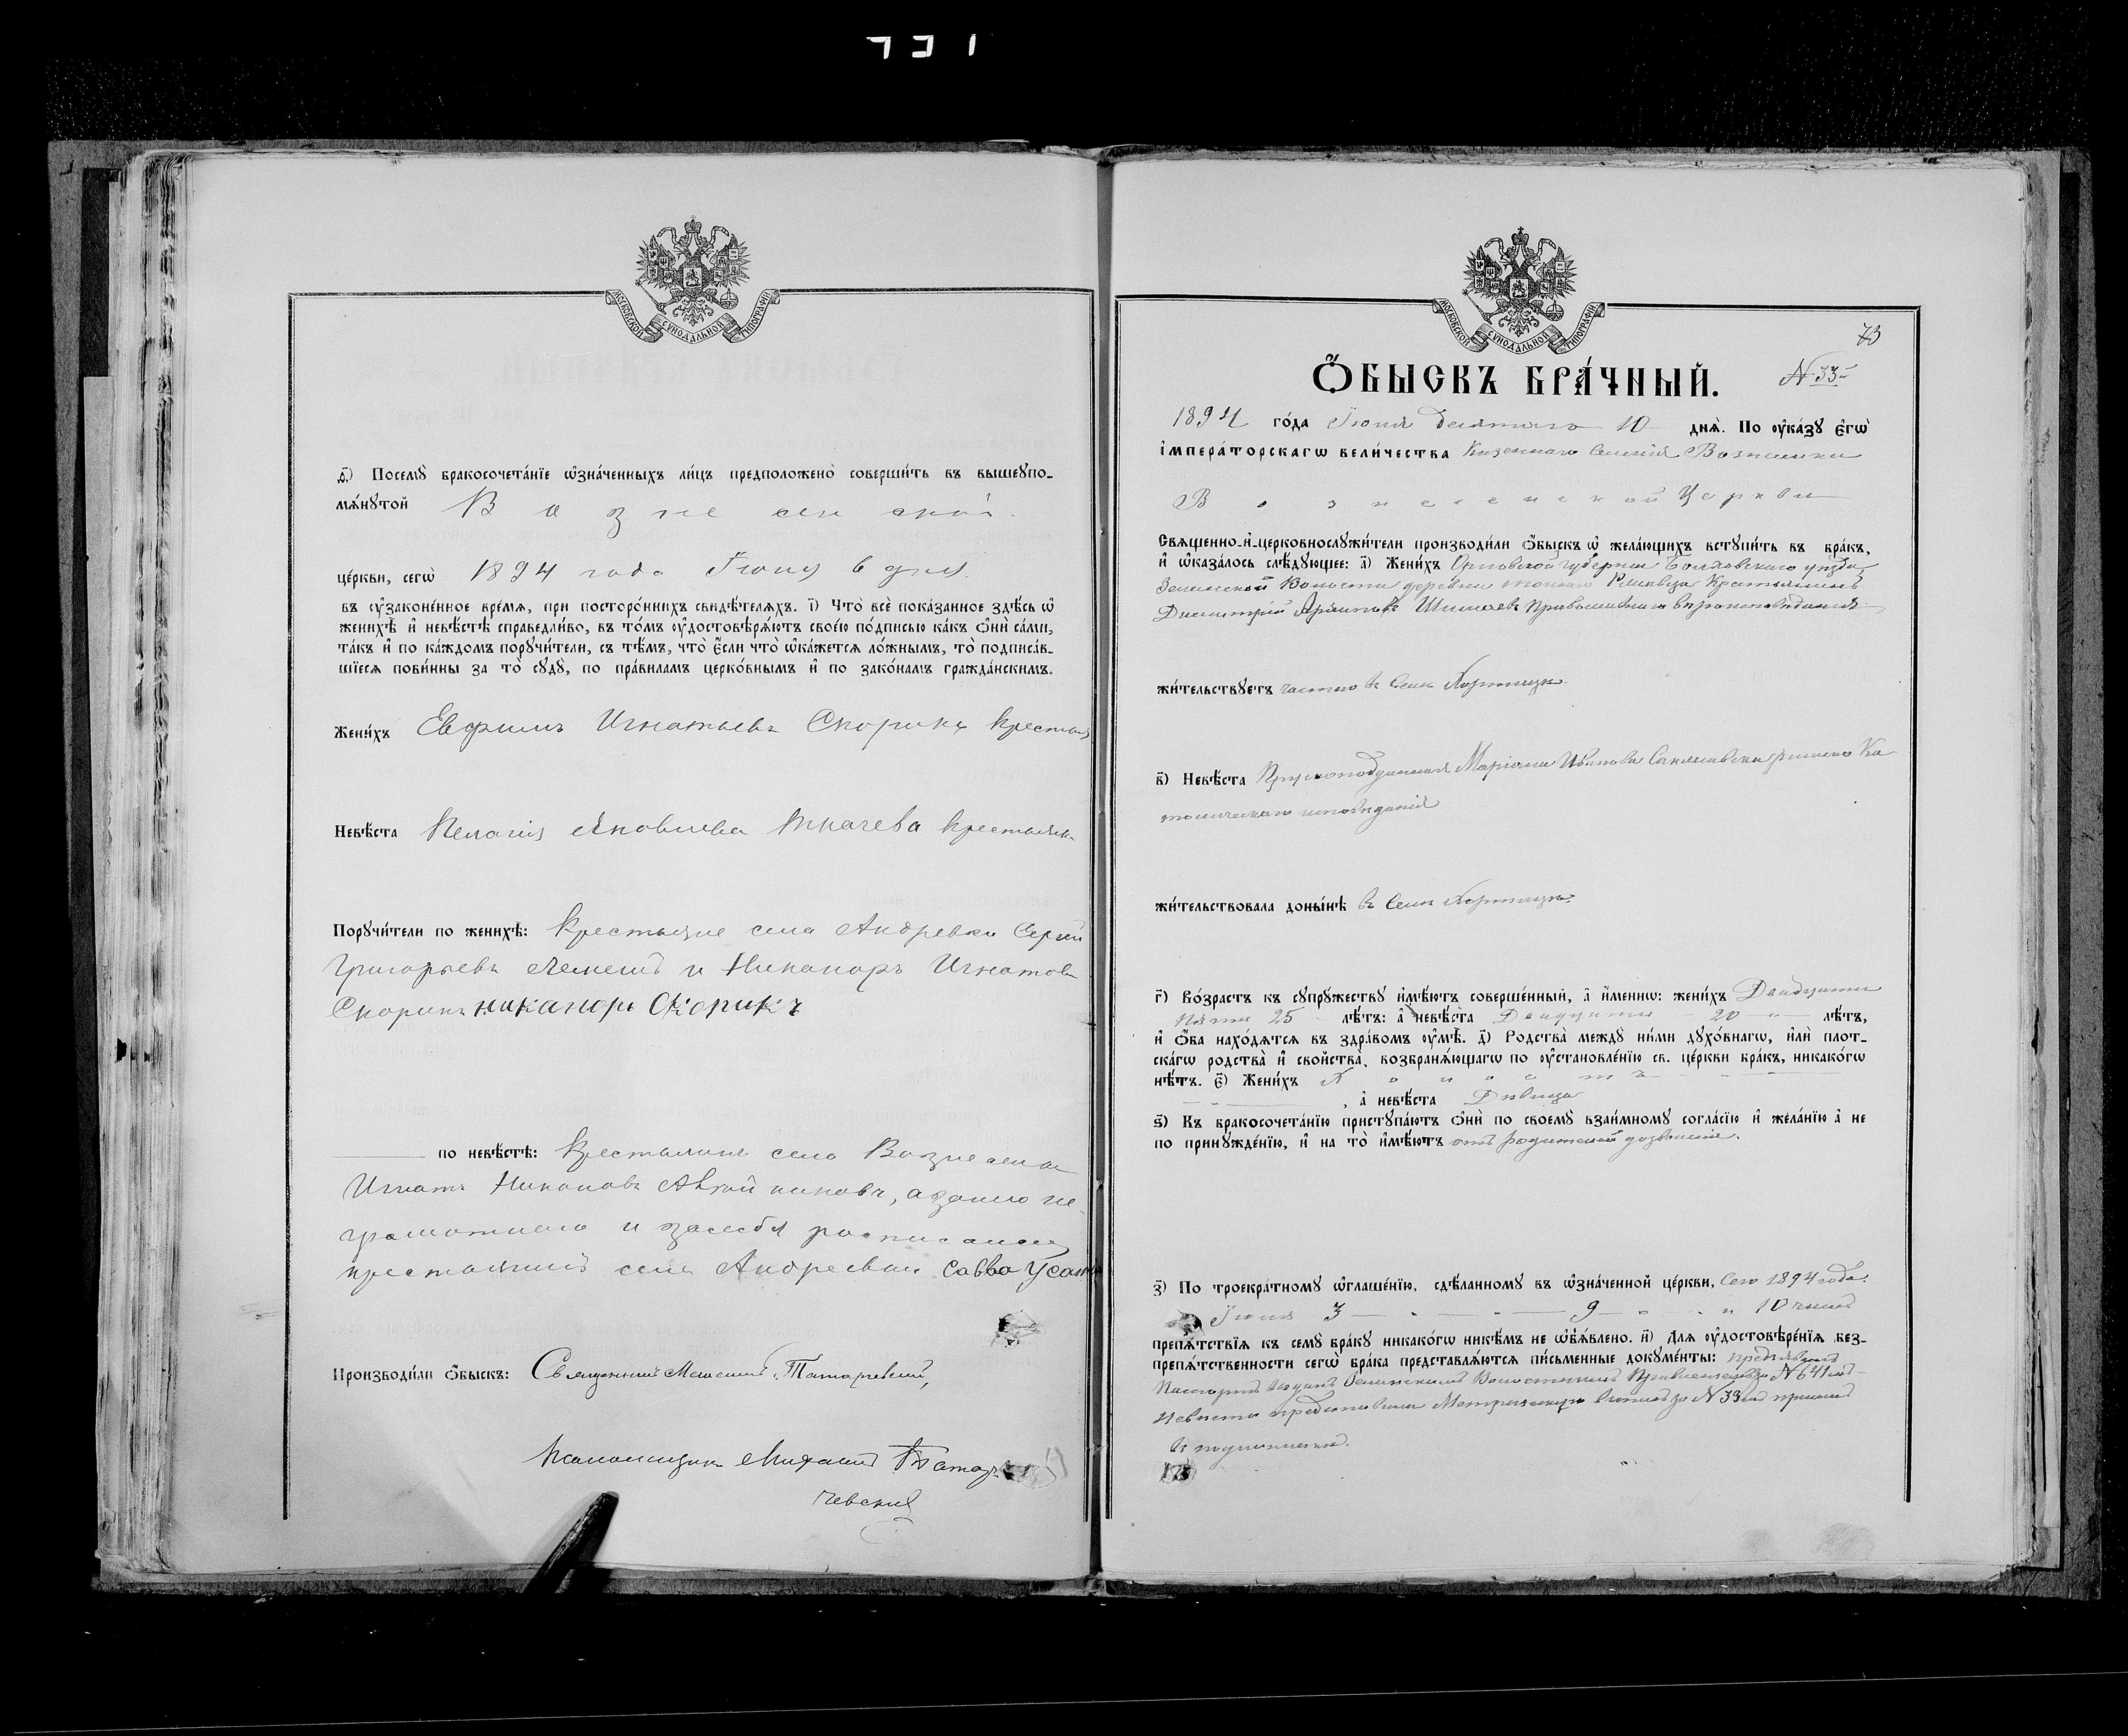 731
МОСКОВСКОЙ СѴНОДАЛЬНОЙ ТИПОГРАФІИ
д҃і) Посемꙋ̀ бракосочета́нїе ѡ҆зна́ченныхъ ли́цъ предположено̀ соверши́ть въ вышеꙋпо-
мѧ́нꙋтой Вознесенской
це́ркви, сегѡ̀ 1894 года Іюня 6 дня
въ ᲂу҆законе́нное вре́мѧ, при посторо́ннихъ свидѣ́телѧхъ. і҃) Что̀ всѐ пока́занное здѣ́сь ѡ҆
женихѣ̀ и҆ невѣ́стѣ справедли́во, въ то́мъ ᲂу҆достовѣрѧ́ютъ свое́ю по́дписью ка́къ ѻ҆нѝ са́ми,
та́къ и҆ по ка́ждомъ порꙋчи́тели, съ тѣ́мъ, что̀ є҆́сли что̀ ѡ҆ка́жетсѧ ло́жнымъ, то̀ подписа́в-
шїесѧ пови́нны за то̀ сꙋдꙋ̀, по пра́виламъ церко́внымъ и҆ по зако́намъ гражда́нскимъ.
Жени́хъ Евфимъ Игнатьевъ Скорикъ крестьян
Невѣ́ста Пелагія Яковлева Ткачева крестьянка
Порꙋчи́тели по женихѣ̀: Крестьяне села Андревки Сергій
Григорьевъ Лемешъ и Никаноръ Игнатовъ
Скорикъ никаноръ Скорикъ
по невѣ́стѣ: Крестьянинъ села Вознесенки
Игнатъ Никоновъ, а за него не
грамотнаго и за себя росписался
крестьянинъ села Андреевки Савва Усат
Производи́ли ѻ҆́быскъ: Священникъ Татаревскій,
Псаломщикъ Михаилъ Татар
чевскій
МОСКОВСКОЙ СѴНОДАЛЬНОЙ ТИПОГРАФІИ
73
Ѻ҆́БЫСКЪ БРА́ЧНЫЙ. N 33
1894 го́да Іюня десятаго 10 днѧ̀. По ᲂу҆ка́зꙋ є҆гѡ̀
і҆мпера́торскагѡ вели́чества Казеннаго Селенія Вознесенки
Вознесенской Церкви
Свѧще́нно-и҆-церковнослꙋжи́тели производи́ли ѻ҆́быскъ ѡ҆ жела́ющихъ встꙋпи́ть въ бра́къ,
и҆ ѡ҆каза́лось слѣ́дꙋющее: а҃) Жени́хъ Орловской губерніи Болховскаго уѣзда
Волости деревни Крестьянинъ
Димитрій Православнаго вѣроисповѣданія
жи́тельствꙋетъ въ Селѣ Хортицѣ
в҃) Невѣ́ста Прусскоподданная Маріанна Иванова римско Ка
толическаго исповѣданія
жи́тельствовала донынѣ въ Селѣ Хортицѣ
г҃) Во́зрастъ къ сꙋпрꙋ́жествꙋ и҆мѣ́ютъ соверше́нный, а҆ и҆́меннѡ: жени́хъ Двадцати
пяти 25 лѣ́тъ: а҆ невѣ́ста Двадцати 20 лѣ́тъ,
и҆ ѻ҆́ба нахо́дѧтсѧ въ здра́вомъ ᲂу҆мѣ̀. д҃) Родства̀ междꙋ̀ ни́ми дꙋхо́внагѡ, и҆лѝ плот-
ска́гѡ родства̀ и҆ сво́йства, возбранѧ́ющагѡ по ᲂу҆становле́нїю св. це́ркви бра́къ, никако́гѡ
нѣ́тъ. є҃) Жени́хъ Холостъ
, а҆ невѣ́ста Дѣвица
ѕ҃) Къ бракосочета́нїю пристꙋпа́ютъ ѻ҆нѝ по своемꙋ̀ взаи́мномꙋ согла́сїю и҆ жела́нїю а҆ не
по принꙋжде́нїю, и҆ на то̀ и҆мѣ́ютъ отъ родителей дозволеніе.
з҃) По троекра́тномꙋ ѡ҆глаше́нїю, сдѣ́ланномꙋ въ ѡ҆зна́ченной це́ркви, Сего 1894 года
Іюня 3 — 9 — и 10 чиселъ
препѧ́тствїѧ къ семꙋ̀ бра́кꙋ никако́гѡ никѣ́мъ не ѡ҆б̾ѧ́влено. и҃) Длѧ ᲂу҆достовѣре́нїѧ без-
препѧ́тственности сегѡ̀ бра́ка представлѧ́ютсѧ пи́сьменные докꙋме́нты: предъявилъ
Паспортъ выданъ Волостнымъ Правленіемъ за N 641
Невѣста представила Метрическую выпись за N 33